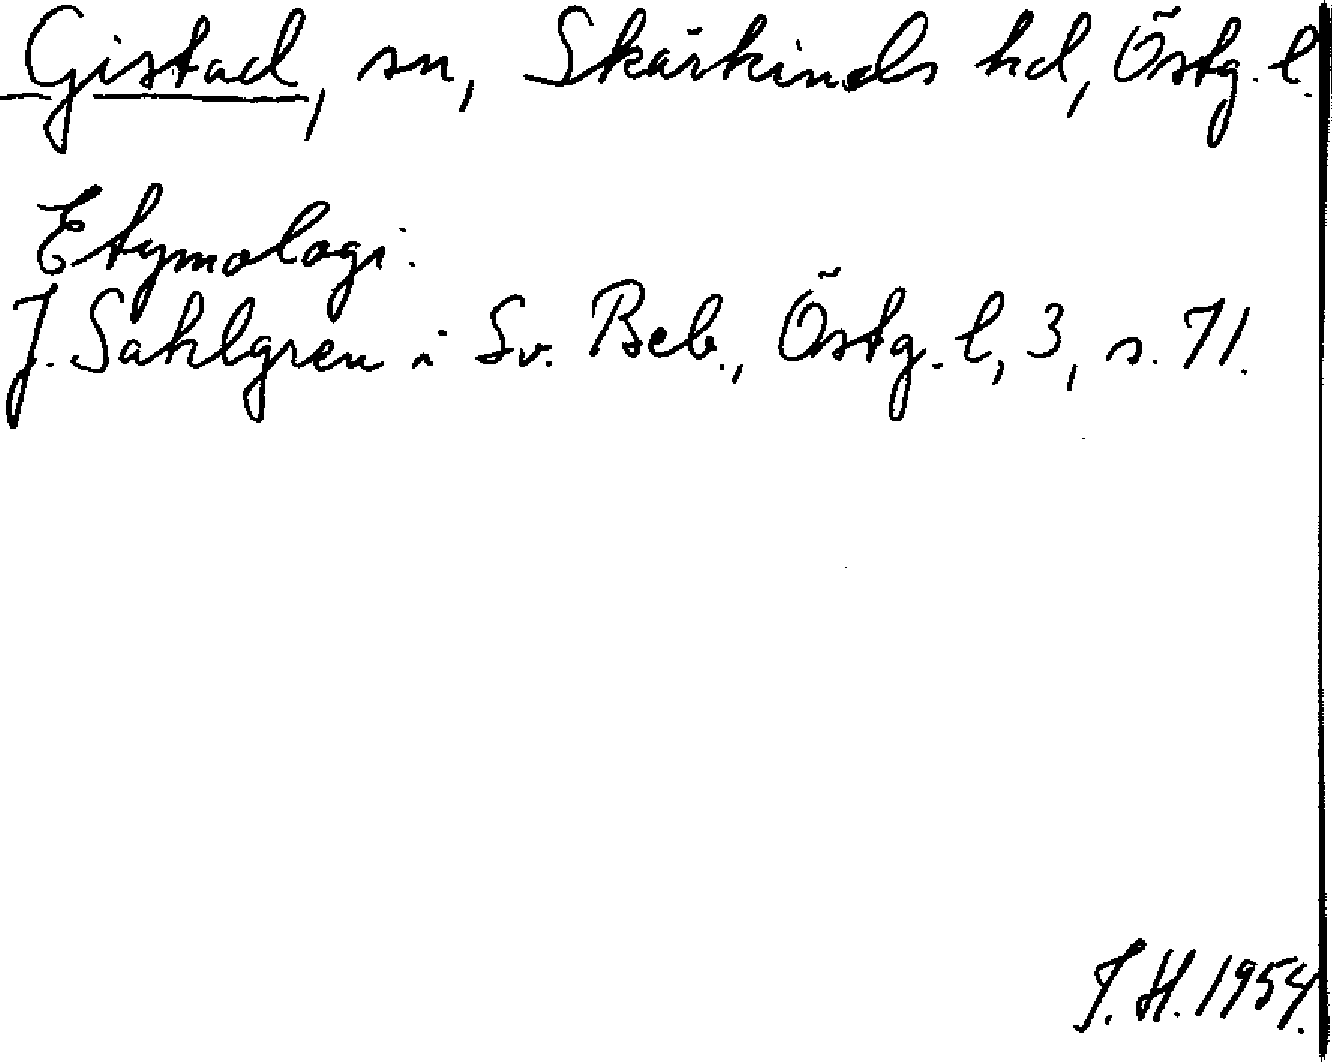 Gistad, sn, Skärkinds hd, Östg. l.
Etymologi.
J. Sahlgren i Sv. Beb., Östg. l, 3, s. 71.
J. H. 1954.